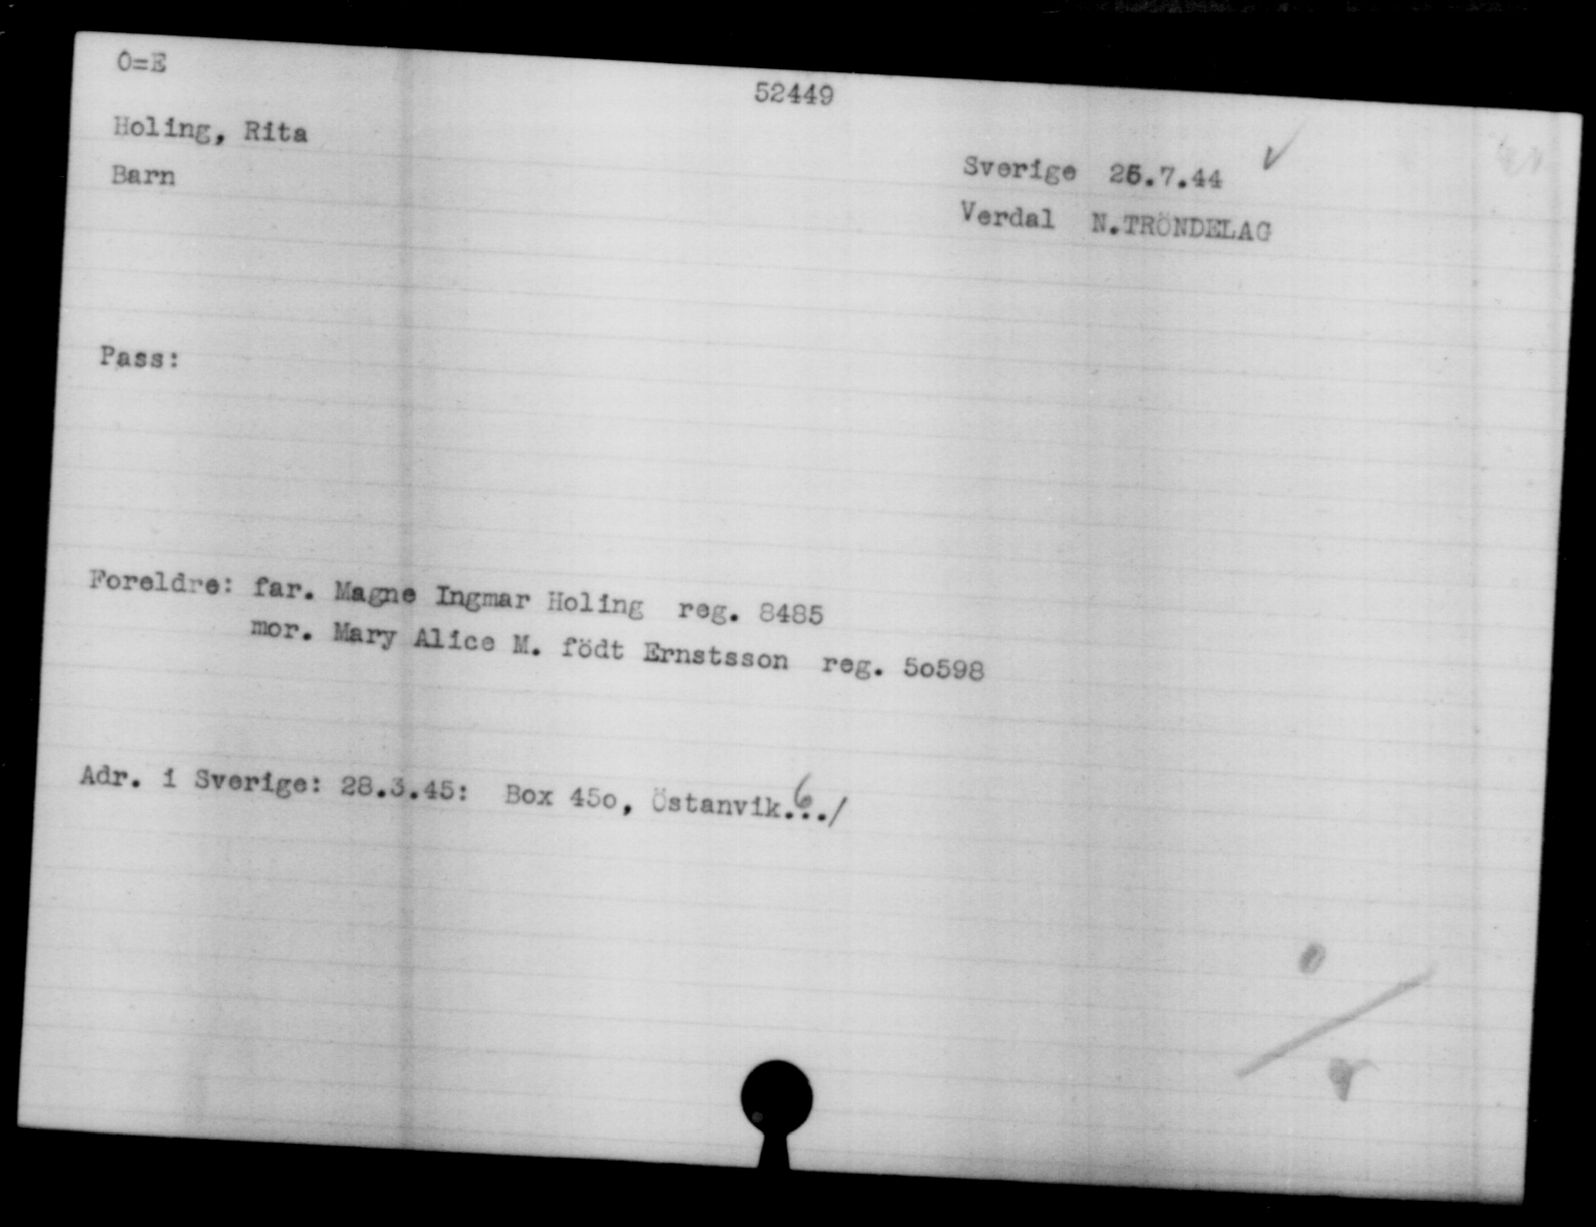 O=E
52449
Holing, Rita
Barn
Sverige 26.7.44
Verdal N.TRÖNDELAG
Pass:
Foreldre: far. Magne Ingmar Holing reg. 8485
mor. Mary Alice M. födt Ernstsson reg. 5o598
Adr. i Sverige: 28.3.45: Box 45o, Östanvik.../
6